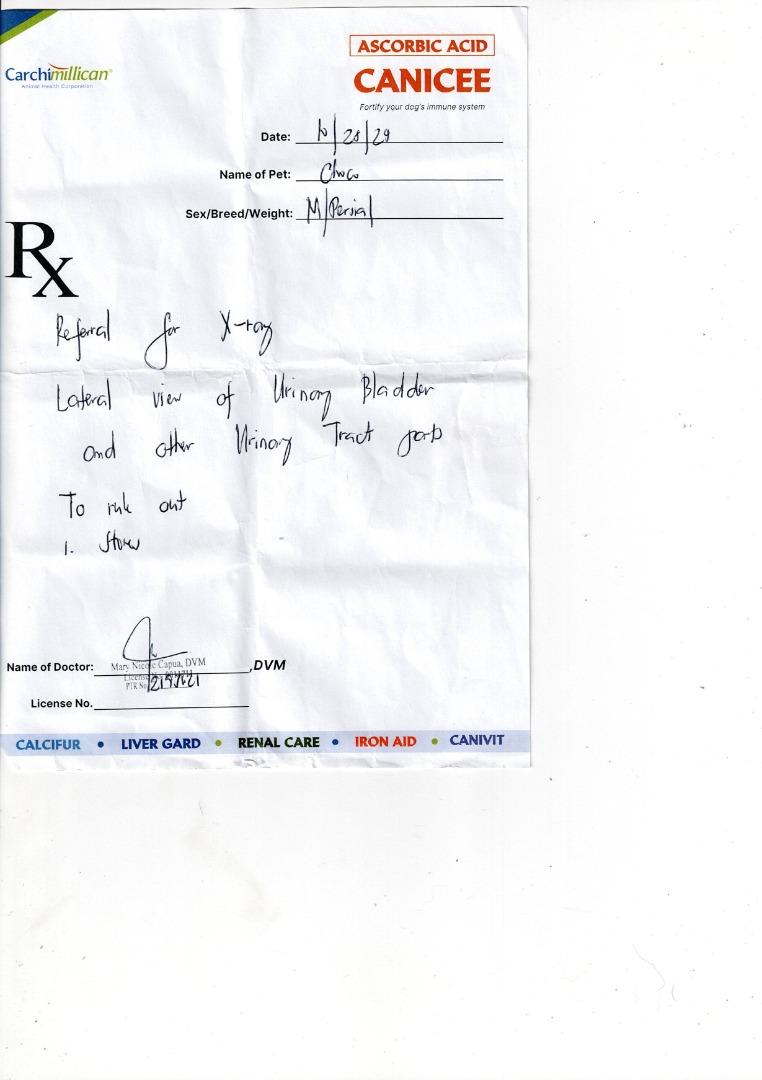 ASCORBIC ACID
Carchimillican®
Animal Health Corporation
CANICEE
Fortify your dog's immune system
Date: 10/28/29
Name of Pet: Choco
Sex/Breed/Weight: M/Persia/
Rx
Referral for X-ray
Lateral view of Urinary Bladder
and other Urinary Tract parts
To rule out
1. Stones
Name of Doctor: Mary Nicole Capua, DVM ,DVM
License
PTR No.
License No.
CALCIFUR • LIVER GARD • RENAL CARE • IRON AID • CANIVIT